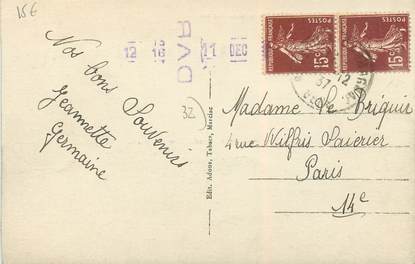 15€
12 16 DVB 11 DEC
REPUBLIQUE FRANÇAISE POSTES 15c
REPUBLIQUE FRANÇAISE POSTES 15c
12
37
32
Nos bons Souvenirs
Jeannette
Germaine
Edit. Adons, Tabacs, Merciac
Madame Ve Briguir
4 rue Wilfrid Laurier
Paris
14e